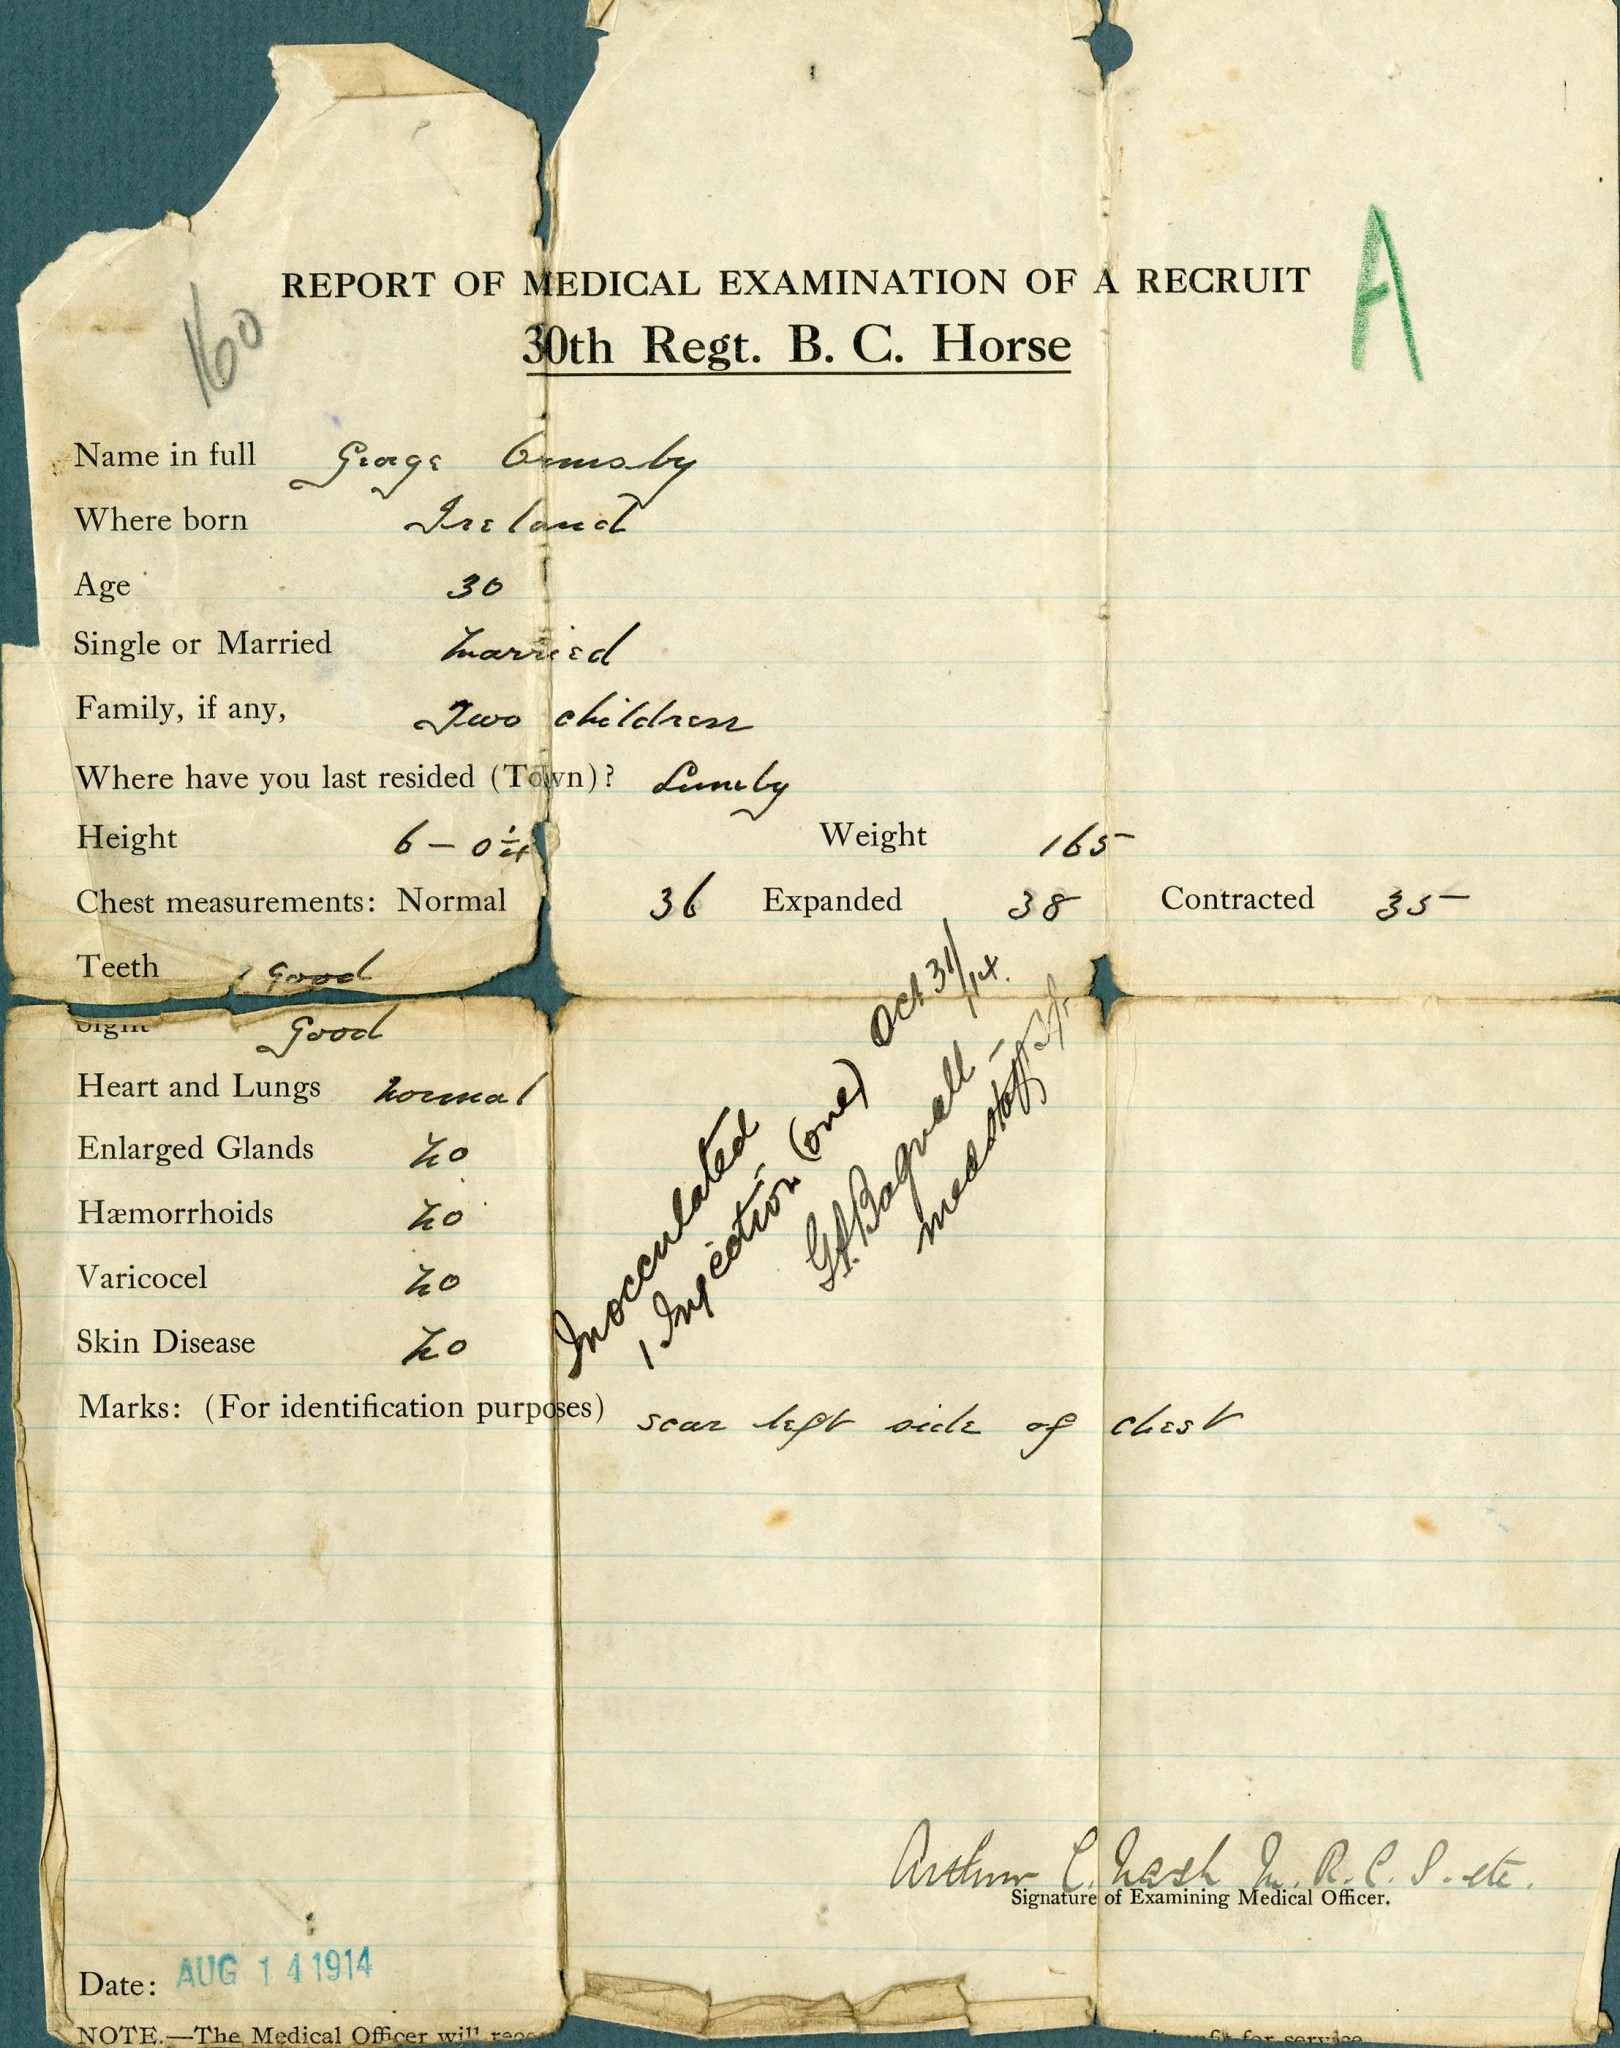 REPORT OF MEDICAL EXAMINATION OF A RECRUIT
A
30th Regt. B. C. Horse
160
Name in full George Ormsby
Where born Ireland
Age 30
Single or Married Married
Family, if any, Two children
Where have you last resided (Town)? Lumby
Height 6 - 0 1/4 Weight 165
Chest measurements: Normal 36 Expanded 38 Contracted 35
Teeth Good
Sight Good
Heart and Lungs normal
Enlarged Glands no
Hæmorrhoids no
Varicocel no
Skin Disease no
Inocculated
1 Injection (one) Oct 31/14.
Bagnall -
Med
Marks: (For identification purposes) scar left side of chest
Arthur C. Nash M. R. C. S. etc.
Signature of Examining Medical Officer.
Date: AUG 14 1914
NOTE.—The Medical Officer will for service